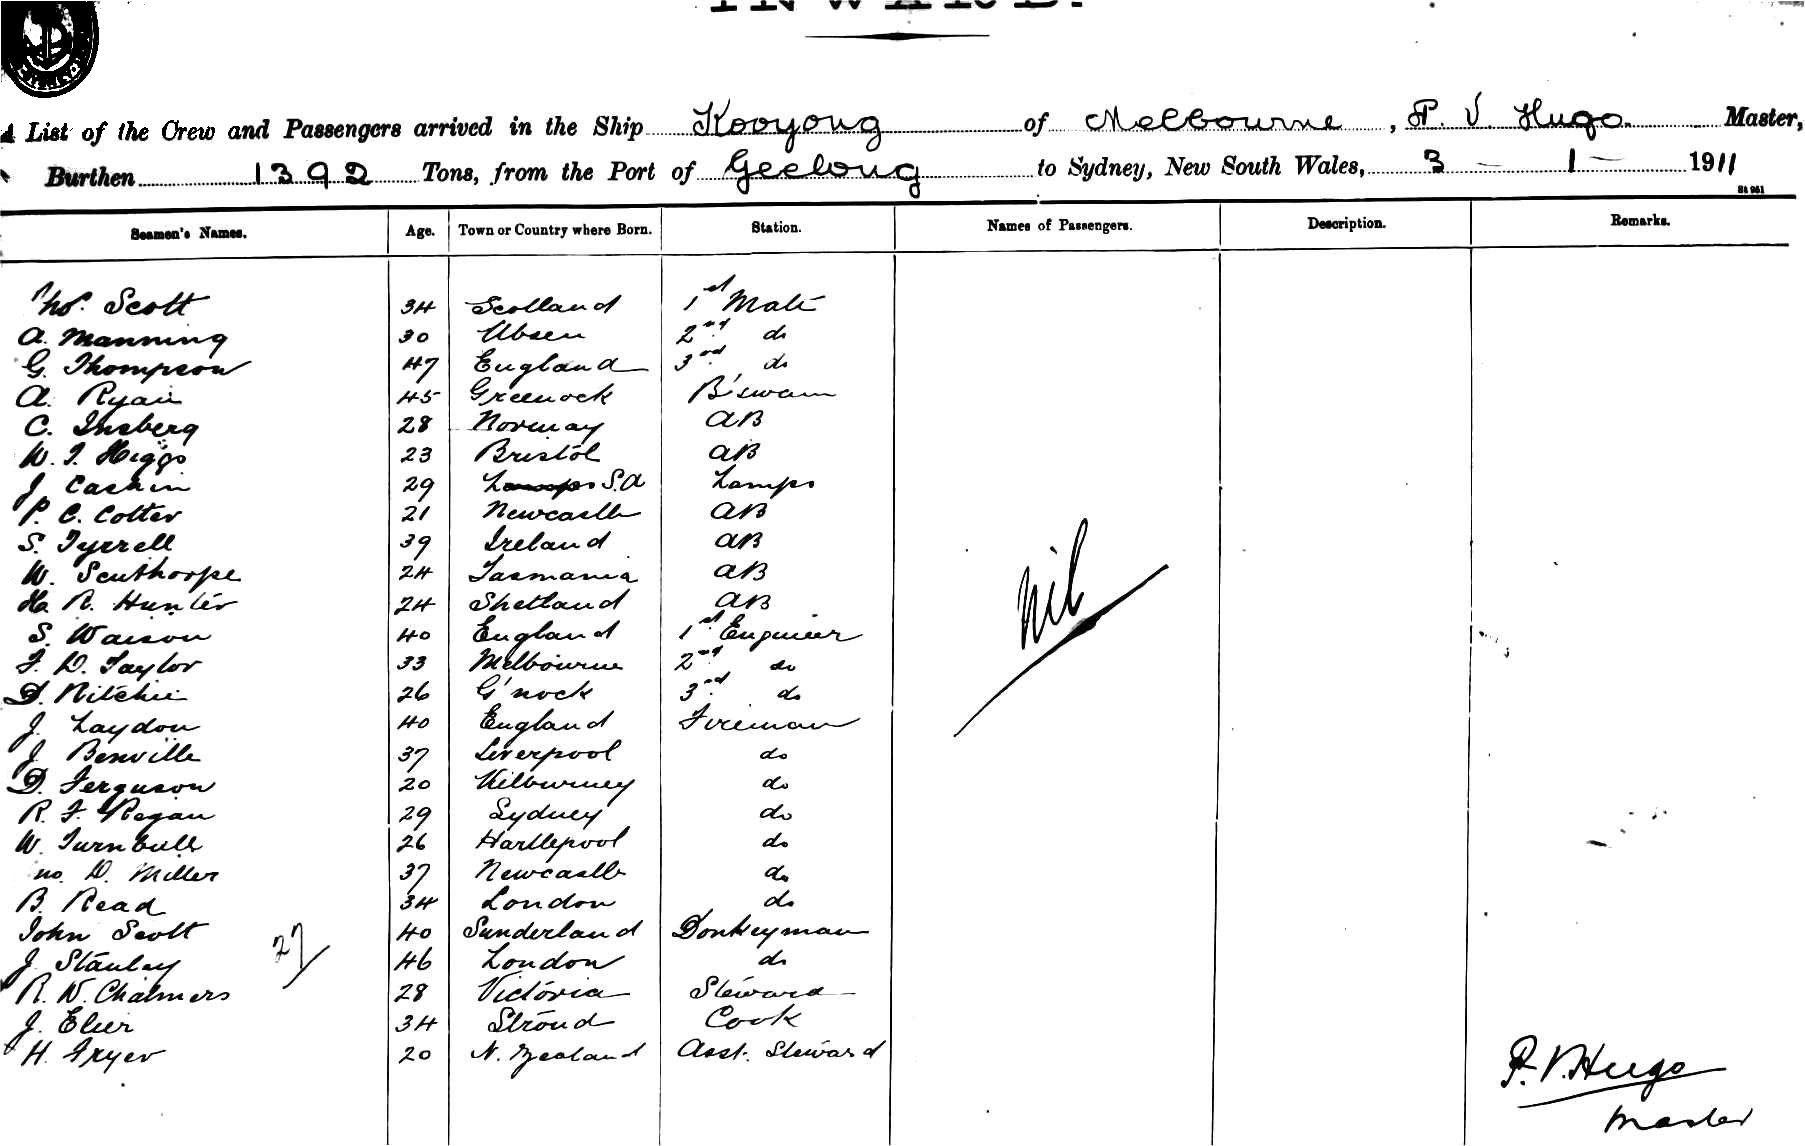 List of the Crew and Passengers arrived in the Ship Kooyong of Melbourne, P. V. Hugo. Master,
Burthen 1392 Tons, from the Port of Geelong to Sydney, New South Wales, 3 - 1 - 1911
St 951
Seamen's Names. Age. Town or Country where Born. Station. Names of Passengers. Description. Remarks.
Thos. Scott 34 Scotland 1st Mate
A. Manning 30 2nd do
G. Thompson 47 England 3rd do
A. Ryan 45 Greenock B'swain
C. Insberg 28 Norway AB
W. J. Higgs 23 Bristol AB
J. Cashin 29 Lamps S.A Lamps
P. C. Cotter 21 Newcastle AB
S. Tyrrell 39 Ireland AB
W. Scuthorpe 24 Tasmania AB
R. Hunter 24 Shetland AB
nil
S. Waison 40 England 1st Engineer
F. D. Taylor 33 Melbourne 2nd do
D. Ritchie 26 G'nock 3rd do
J. Laydon 40 England Fireman
J. Benville 37 Liverpool do
D. Ferguson 20 do
R. F. Regan 29 Sydney do
W. Turnbull 26 Hartlepool do
D. Miller 37 Newcastle do
B. Read 34 London do
John Scott 40 Sunderland Donkeyman
27
J. Stanley 46 London do
R. W. Chalmers 28 Victoria Steward
J. 34 Stroud Cook
H. Fryer 20 N. Zealand Asst. Steward
P. V. Hugo
Master